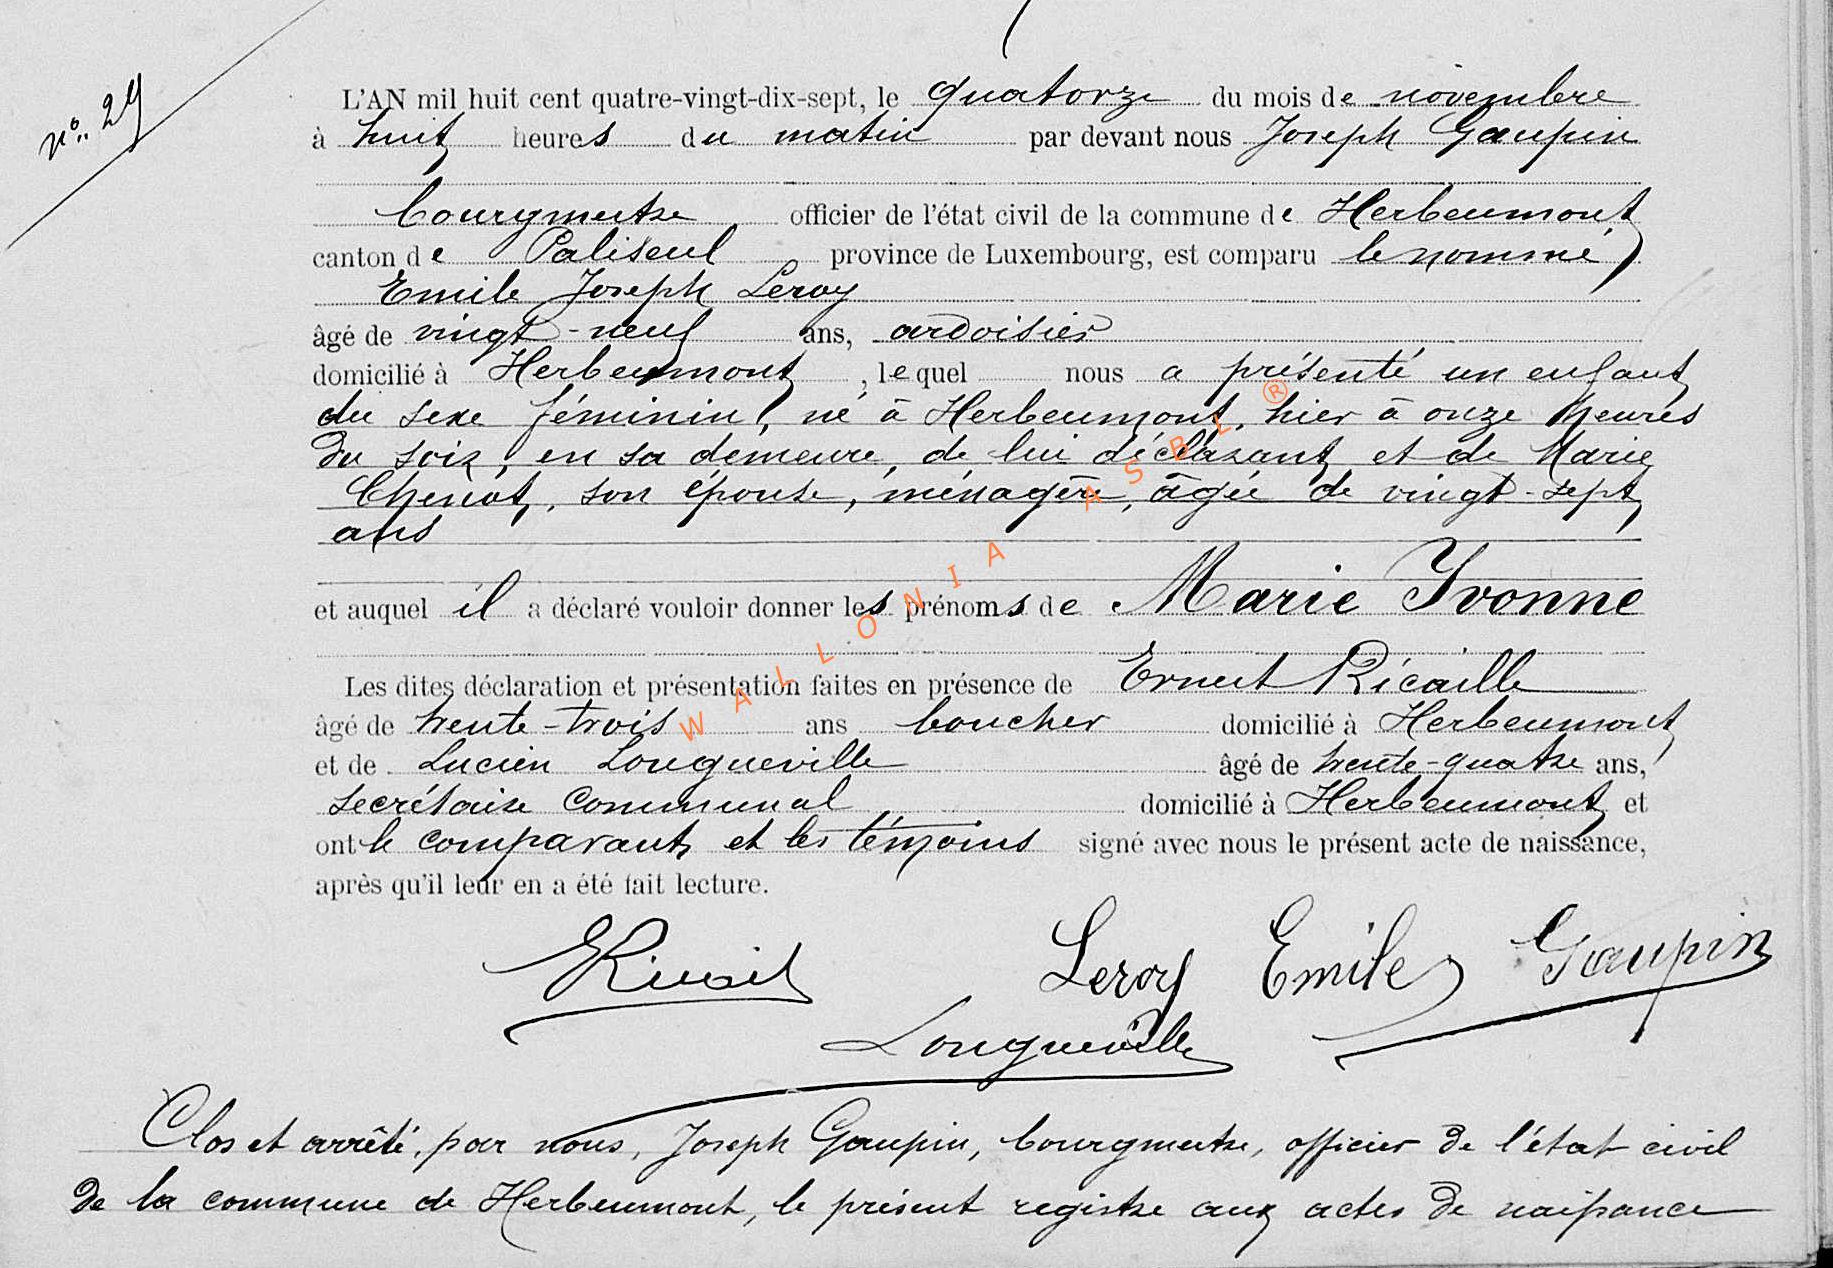 n°. 29
L'AN mil huit cent quatre-vingt-dix-sept, le quatorze du mois de novembre
à huit heures du matin par devant nous Joseph Gaupin
bourgmestre officier de l'état civil de la commune de Herbeumont
canton de Paliseul province de Luxembourg, est comparu le nommé
Emile Joseph Leroy
âgé de vingt-neuf ans, ardoisier
domicilié à Herbeumont, lequel nous a présenté un enfant
du sexe féminin, né à Herbeumont, hier à onze heures
du soir, en sa demeure, de lui déclarant et de Marie
Chenot, son épouse, ménagère, âgée de vingt-sept
ans
et auquel il a déclaré vouloir donner les prénoms de Marie Yvonne
Les dites déclaration et présentation faites en présence de Ernest Ricaille
âgé de trente-trois ans boucher domicilié à Herbeumont
et de Lucien Longueville âgé de trente-quatre ans,
secrétaire communal domicilié à Herbeumont et
ont le comparant et les témoins signé avec nous le présent acte de naissance,
après qu'il leur en a été fait lecture.
Leroy Emile Gaupin
Longueville
Clos et arrêté, par nous, Joseph Gaupin, bourgmestre, officier de l'état civil
de la commune de Herbeumont, le présent registre aux actes de naissance
WALLONIA ASBL ®